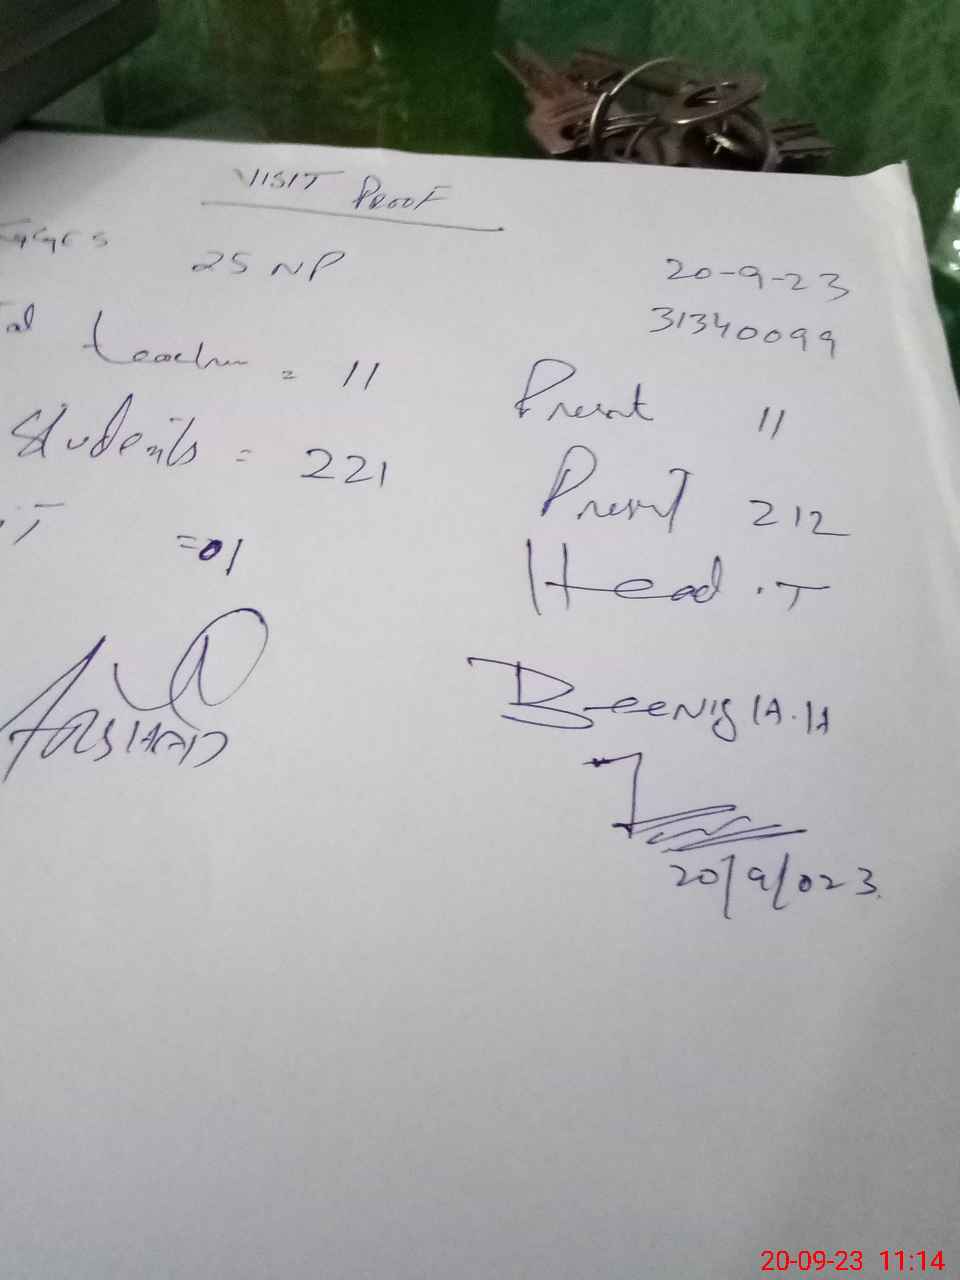 VISIT PROOF
GGES 25 NP 20-9-23
31340099
tal teacher = 11 Present 11
Students = 221 Present 212
.T =01 Head .T
ARSHAD
20/9/023.
20-09-23 11:14